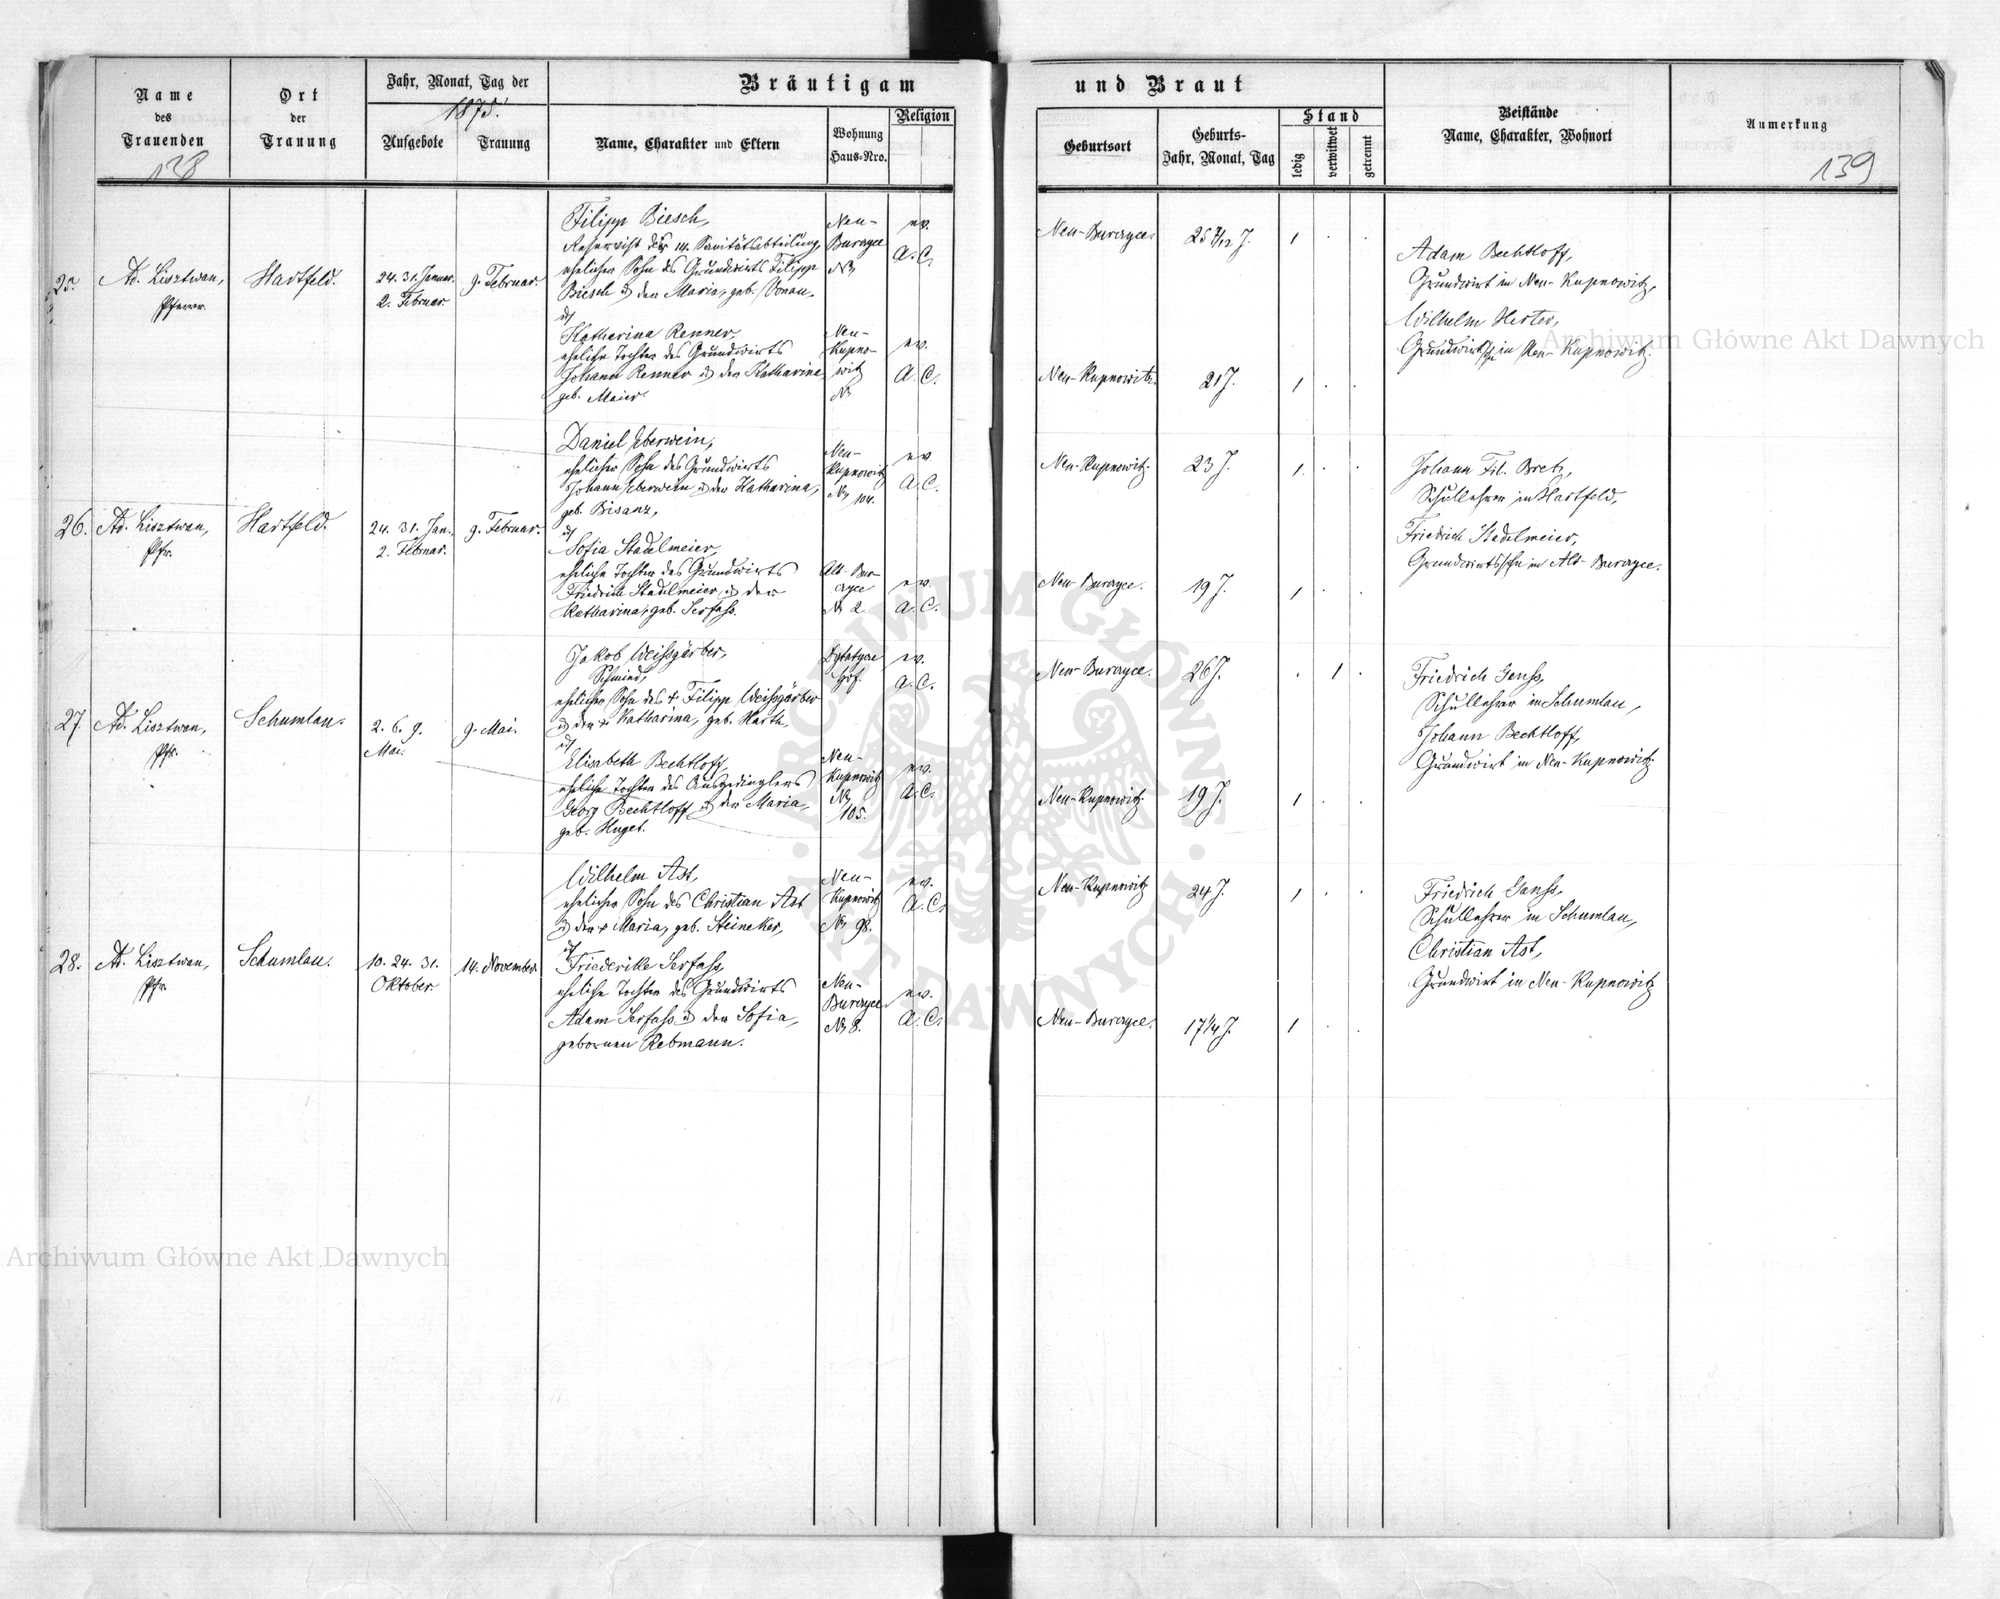 Name
des
Trauenden
138
Ort
der
Trauung
Jahr, Monat, Tag der
1875.
Aufgebote
Trauung
Bräutigam
Name, Charakter und Eltern
Wohnung
Haus-Nro.
Religion
und Braut
Geburtsort
Geburts-
Jahr, Monat, Tag
Stand
ledig
verwitwet
getrennt
Beistände
Name, Charakter, Wohnort
Anmerkung
139
25.
Ad. Lisztwan,
Pfarrer.
Hartfeld.
24. 31. Januar.
2. Februar
9. Februar.
Filipp Biesch,
Reservist der 14. Sanitätsabteilung,
ehelicher Sohn des Grundwirts Filipp
Biesch u der Maria, geb. Vonau,
u
Katharina Renner,
eheliche Tochter des Grundwirts
Johann Renner u der Katharine
geb. Maier.
Neu-
Burczyce
№
ev.
A. C.
Neu-
Kupno-
witz
№
ev.
A. C.
Neu-Burczyce.
1 . .
Neu-Kupnowitz.
21 J.
1 . .
Adam Bechtloff,
Grundwirt in Neu-Kupnowitz,
Wilhelm Herter,
in Neu-Kupnowitz.
26.
Ad. Lisztwan,
Pfr.
Hartfeld.
24. 31. Jan.,
2. Februar.
9. Februar.
Daniel Eberwein,
ehelicher Sohn des Grundwirts
Johann Eberwein u der Katharina,
geb. Bisanz,
u
Sofia Stadelmeier,
eheliche Tochter des Grundwirts
Friedrich Stadelmeier u der
Katharina, geb. Serfass.
Neu-
Kupnowitz
№ 104.
ev.
A. C.
Alt-Bur-
czyce
№ 2.
ev.
A. C.
Neu-Kupnowitz.
23 J.
1 . .
Neu-Burczyce.
19 J.
1 . .
Johann Fil. Bretz,
Schullehrer in Hartfeld,
Friedrich Stadelmeier,
in Alt-Burczyce.
27.
Ad. Lisztwan,
Pfr.
Schumlau.
2. 6. 9.
Mai.
9. Mai.
Jakob Weissgärber,
Schmied,
ehelicher Sohn des + Filipp Weissgärber
u der + Katharina, geb. Harth,
u
Elisabeth Bechtloff,
eheliche Tochter des Ausgedinglers
Georg Bechtloff u der Maria,
geb. Huget.
Hof.
ev.
A. C.
Neu-
Kupnowitz
№
105.
ev.
A. C.
Neu-Burczyce.
26 J.
. 1 .
Neu-Kupnowitz.
19 J.
1 . .
Friedrich Genss,
Schullehrer in Schumlau,
Johann Bechtloff,
Grundwirt in Neu-Kupnowitz.
28.
Ad. Lisztwan,
Pfr.
Schumlau.
10. 24. 31.
Oktober.
14. November.
Wilhelm Ast,
ehelicher Sohn des Christian Ast
u der + Maria, geb. Steineker,
u
Friederike Serfass,
eheliche Tochter des Grundwirts
Adam Serfass u der Sofia,
gebornen Rebmann.
Neu-
Kupnowitz
№ 98.
ev.
A. C.
Neu-
Burczyce
№ 8.
ev.
A. C.
Neu-Kupnowitz
24 J.
1 . .
Neu-Burczyce.
17 1/4 J.
1 . .
Friedrich Genss,
Schullehrer in Schumlau,
Christian Ast,
Grundwirt in Neu-Kupnowitz
Archiwum Główne Akt Dawnych
Archiwum Główne Akt Dawnych
ARCHIWUM GŁÓWNE · AKT DAWNYCH ·